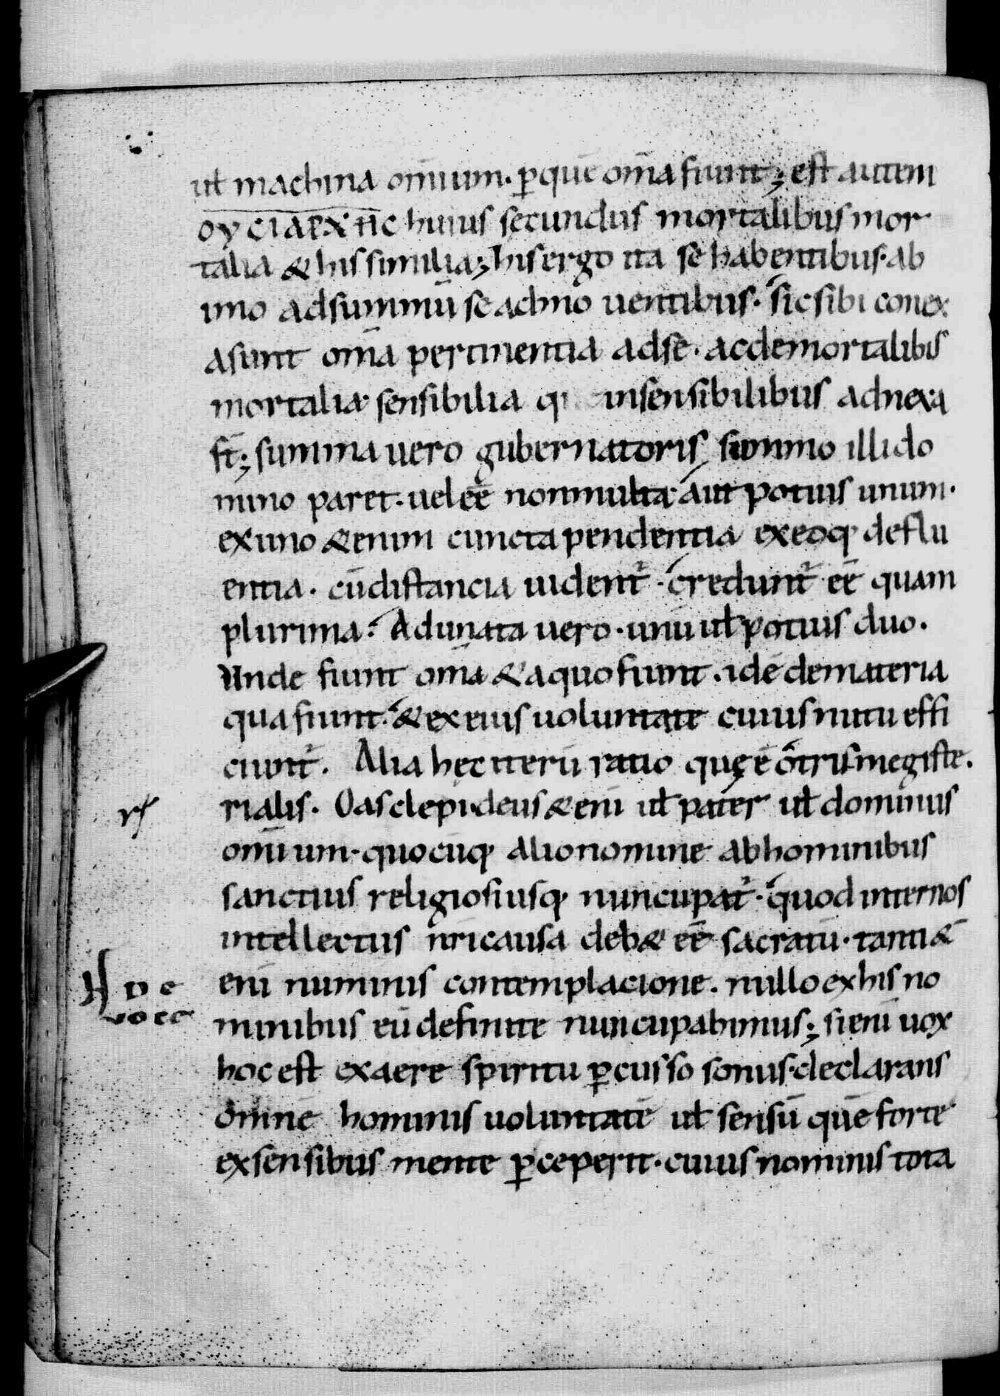 ul̄ machina om̄ium. ꝑ quē om̄a fiunt; est autem
ΟΥCΙΑΡΧΗC huius secundus mortalibus mor
talia & his similia; his ergo ita se habentibus. ab
imo ad summū se admo uentibus. sic sibi conex
a sunt om̄a pertinentia ad se. ac de mortalibus
mortalia sensibilia insensibilibus adnexa
st̄; summa uero gubernatoris summo illi do
mino paret. uel eē non multa aut potius unum.
ex uno & enim cuncta pendentia ex eoq; deflu
entia. cū distancia uident᷑. credunt᷑ eē quam
plurima. Adunata uero. unū ul̄ potius duo.
Unde fiunt om̄a & a quo fiunt. idē de materia
qua fiunt. & ex eius uoluntate cuius nutu effi
ciunt᷑. Alia hęc iterū ratio quę ē o trismegiste.
rialis. O asclepi. deus & enī ul̄ pater ul̄ dominus
om̄ium. quocūq; alio nomine ab hominibus
r̄
sanctius religiosiusq; nuncupat᷑. quod inter nos
intellectus n̄ri causa deb& eē sacratū. tanti &
enī numinis contemplacione. nullo ex his no
De
uoce
minibus eū definite nuncupabimus; si enī uox
hoc est ex aere spiritu ꝑcusso sonus. declarans
omnē hominis uoluntatē ul̄ sensū quē forte
ex sensibus mente ꝑceperit. cuius nominis tota